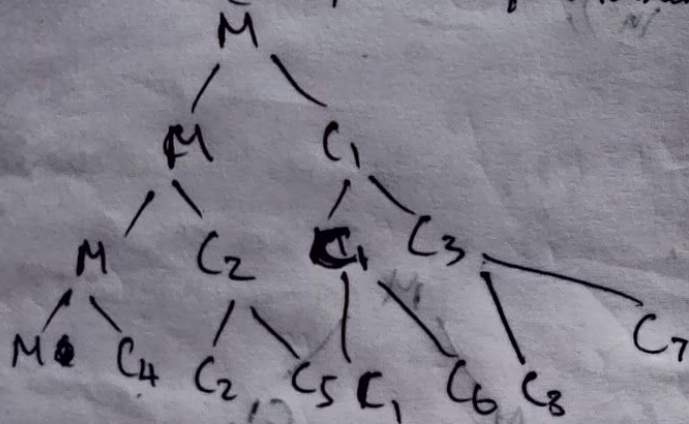 M
M C1
M C2 C1 C3
M C4 C2 C5 C1 C6 C8 C7